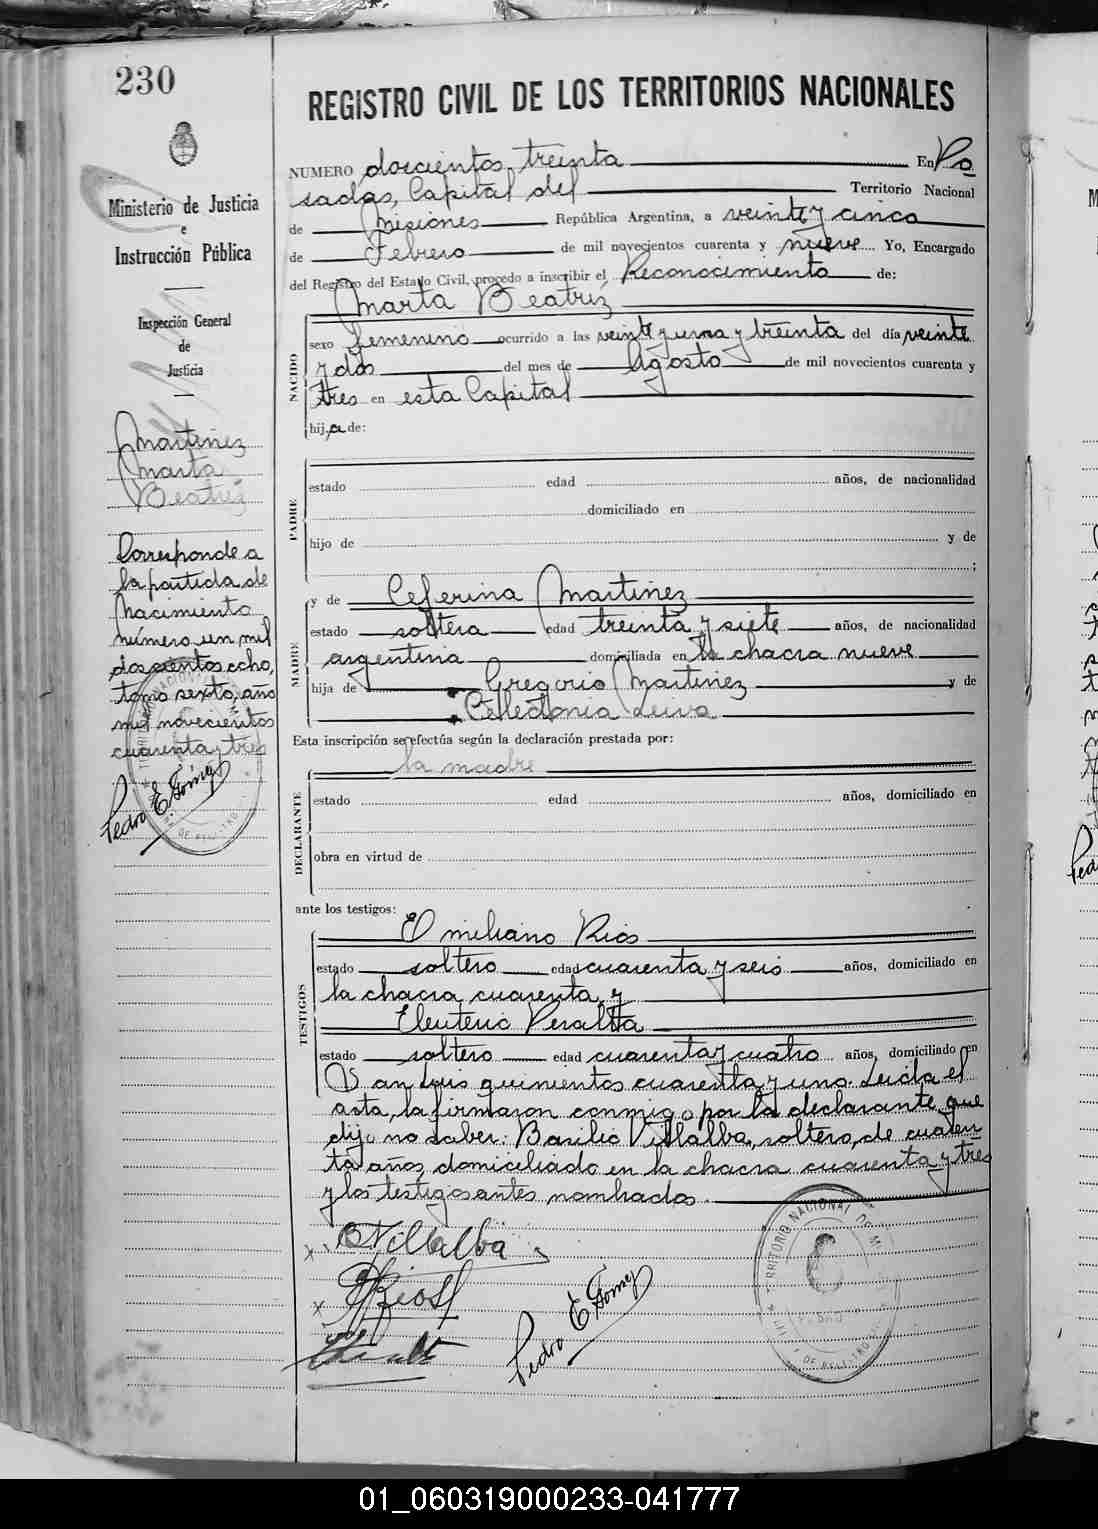 230
Ministerio de Justicia
e
Instrucción Pública
Inspección General
de
Justicia
Martinez
Marta
Beatriz
Corresponde a
la partida de
Nacimiento
número un mil
doscientos ocho,
tomo sexto, año
mil novecientos
cuarenta y tres
Pedro E. Gomez
REGISTRO CIVIL DE LOS TERRITORIOS NACIONALES
NUMERO doscientos treinta En Po
sadas, Capital del Territorio Nacional
de Misiones República Argentina, a veinte y cinco
de Febrero de mil novecientos cuarenta y nueve Yo, Encargado
del Registro del Estado Civil, procedo a inscribir el Reconocimiento de:
Marta Beatriz
NACIDO
sexo femenino ocurrido a las veinte y una y treinta del día veinte
y dos del mes de Agosto de mil novecientos cuarenta y
tres en esta Capital
hija de:
PADRE
estado edad años, de nacionalidad
domiciliado en
hijo de y de
;
MADRE
y de Ceferina Martinez
estado soltera edad treinta y siete años, de nacionalidad
argentina domiciliada en la chacra nueve
hija de Gregorio Martinez y de
Celedonia Leiva
Esta inscripción se efectúa según la declaración prestada por:
la madre
DECLARANTE
estado edad años, domiciliado en
obra en virtud de
ante los testigos:
TESTIGOS
Emiliano Rios
estado soltero edad cuarenta y seis años, domiciliado en
la chacra cuarenta, y
Eleuterio Peralta
estado soltero edad cuarenta y cuatro años, domiciliado en
San Luis quinientos cuarenta y uno. Leida el
acta, la firmaron conmigo por la declarante que
dijo no saber: Basilio Villalba, soltero, de cuaren
ta años, domiciliado en la chacra cuarenta y tres
y los testigos antes nombrados.
Villalba
Rios
Pedro E Gomez
01_060319000233-041777